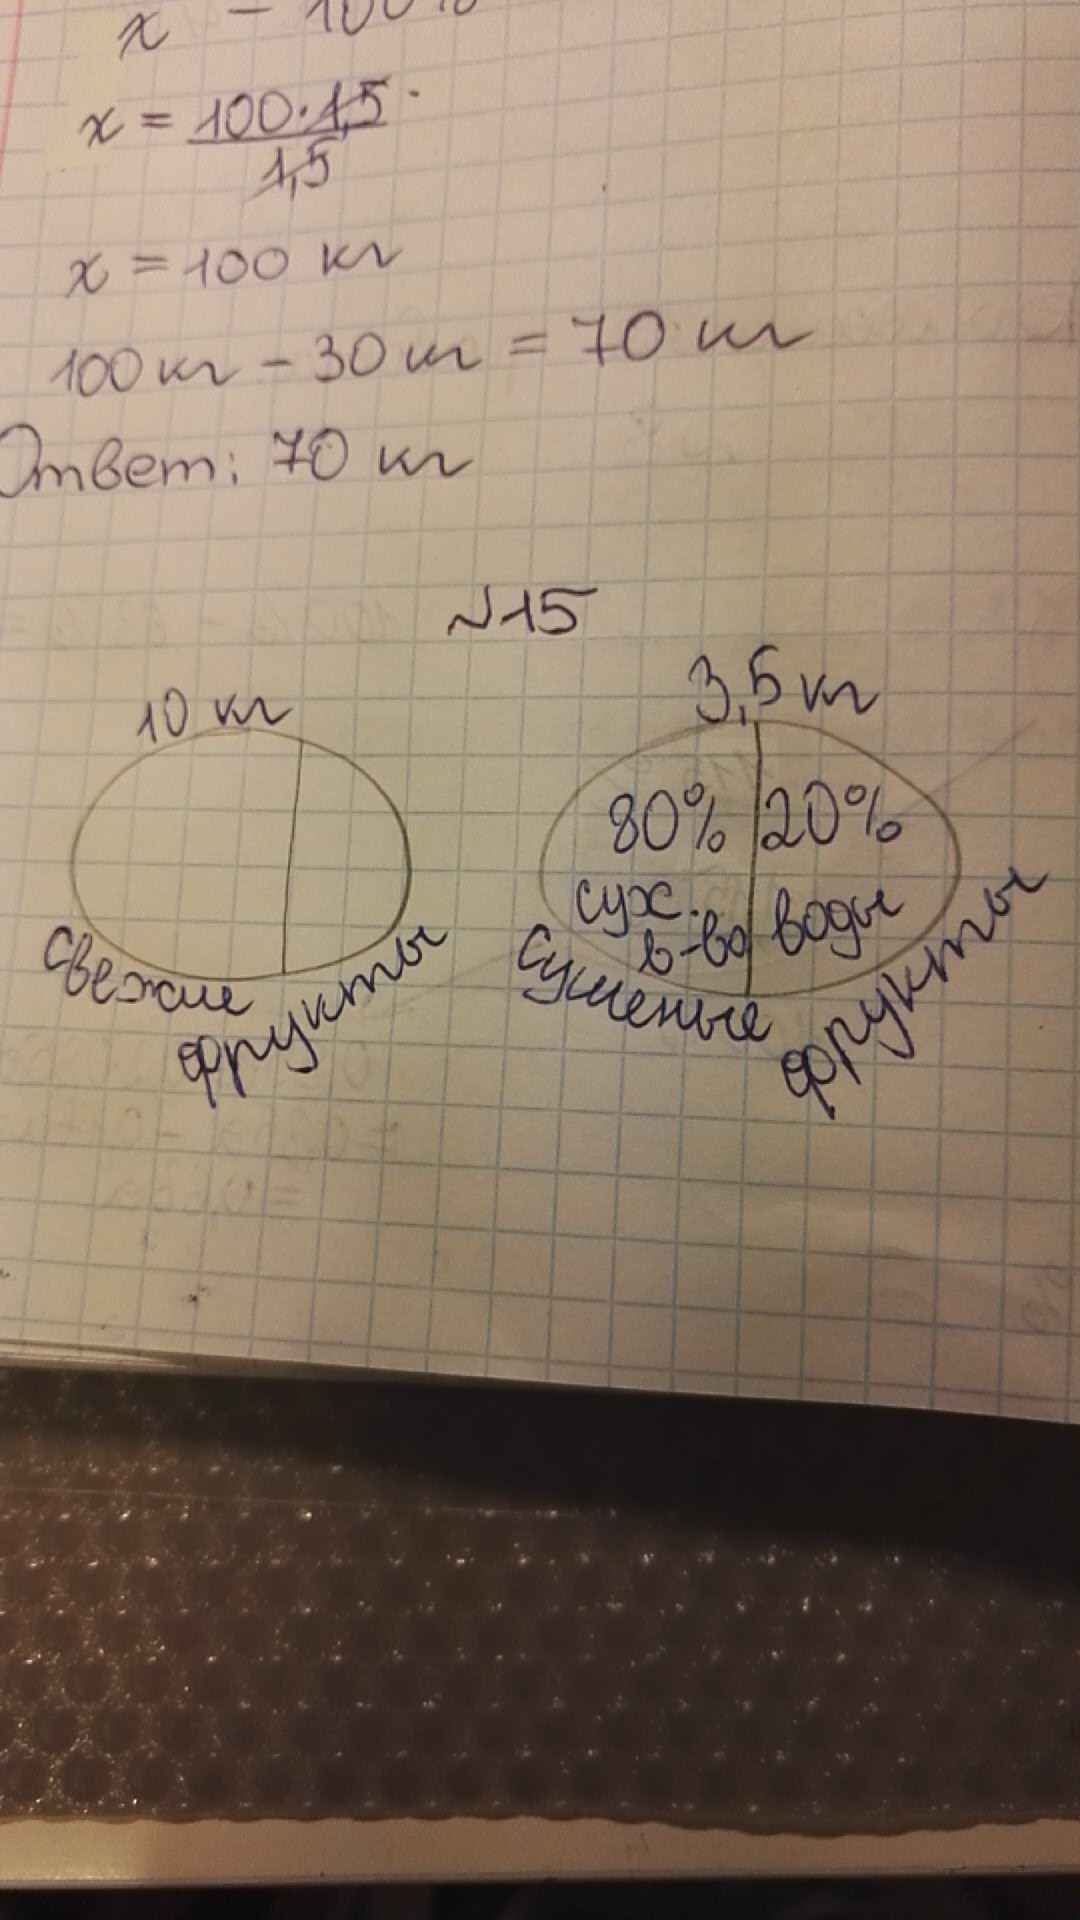 x - 100%
x = 100·1,5
1,5
x = 100 кг
100 кг - 30 кг = 70 кг
Ответ: 70 кг
№15
10 кг
свежие фрукты
3,5 кг
80% 20%
сух. в-во воды
сушеные фрукты